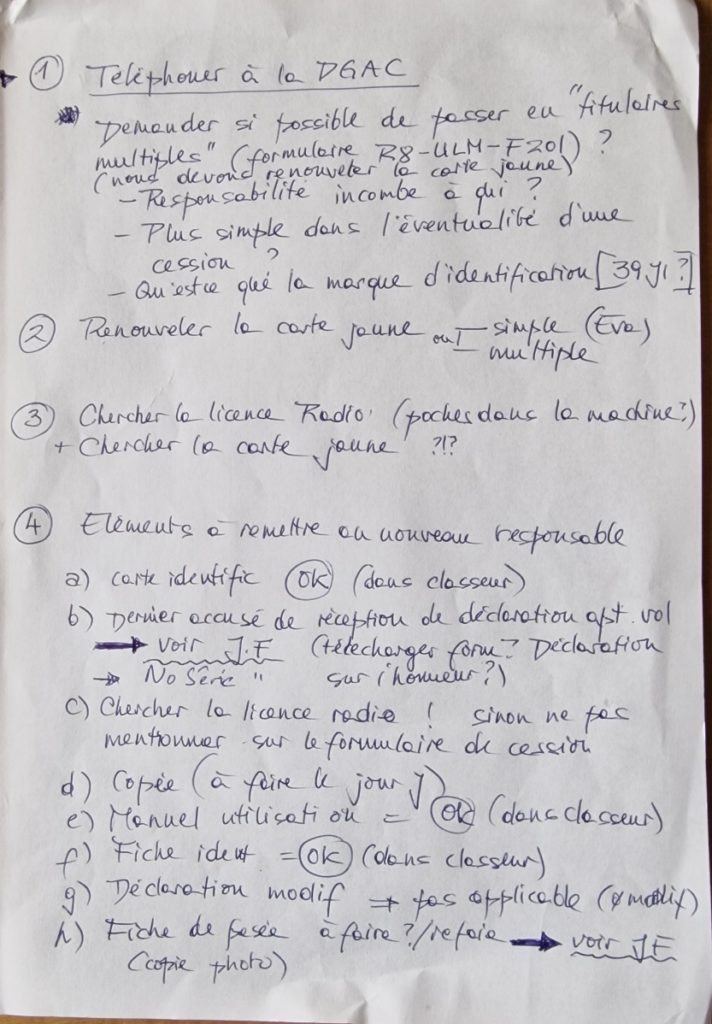 ① Téléphoner à la DGAC
Demander si possible de passer en "titulaires
multiples" (formulaire R8-ULM-F201) ?
(nous devons renouveler la carte jaune)
- Responsabilité incombe à qui ?
- Plus simple dans l'éventualité d'une
cession ?
- Qu'est ce que la marque d'identification [39 YI ?]
② Renouveler la carte jaune ou - simple (Eva)
- multiple
③ Chercher la licence Radio (poches dans la machine?)
+ Chercher la carte jaune ?!?
④ Eléments à remettre au nouveau responsable
a) carte identific OK (dans classeur)
b) Dernier accusé de réception de déclaration apt. vol
→ voir J.F (télécharger form? Déclaration
→ No Série " sur l'honneur?)
c) Chercher la licence radio ! sinon ne pas
mentionner sur le formulaire de cession
d) Copie (à faire le jour J)
e) Manuel utilisation = OK (dans classeur)
f) Fiche ident = OK (dans classeur)
g) Déclaration modif → pas applicable (ø modif)
h) Fiche de pesée à faire?/refaire → voir J.F
(copie photo)